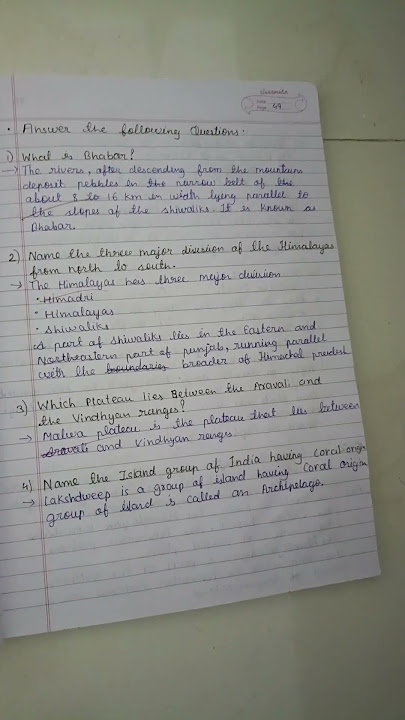 classmate
Date
Page 49
• Answer the following Questions.
1) What is Bhabar?
→ The rivers, after descending from the mountain
deposit pebbles in the narrow belt of the
about 8 to 16 km in width lying parallel to
the slopes of the shiwaliks. It is known as
Bhabar.
2) Name the three major division of the Himalayas
from north to south.
→ The Himalayas has three major division
• Himadri
• Himalayas
• Shiwaliks
A part of Shiwaliks lies in the Eastern and
Northeastern part of punjab, running parallel
with the boundaries broader of Himachal pradesh
3) Which Plateau lies Between the Aravali and
the Vindhyan ranges?
→ Malwa plateau is the plateau that lies between
Aravali and Vindhyan ranges
4) Name the Island group of India having Coral origin
→ Lakshdweep is a group of island having Coral origin
group of island is called an Archipelago.